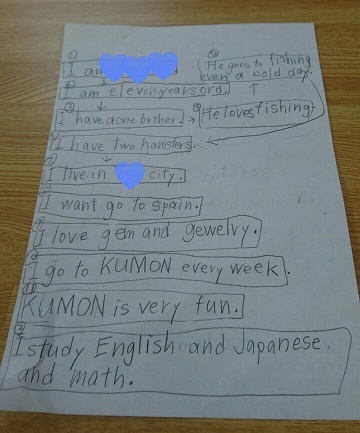 I am
He goes to fishing
even a cold day.
I am elevenyears ord.
I have aone brther.
He loves fishing.
I have two hamsters.
I live in city.
I want go to spain.
I love gem and gewelry.
I go to KUMON every week.
KUMON is very fun.
I study English and Japanese.
and math.